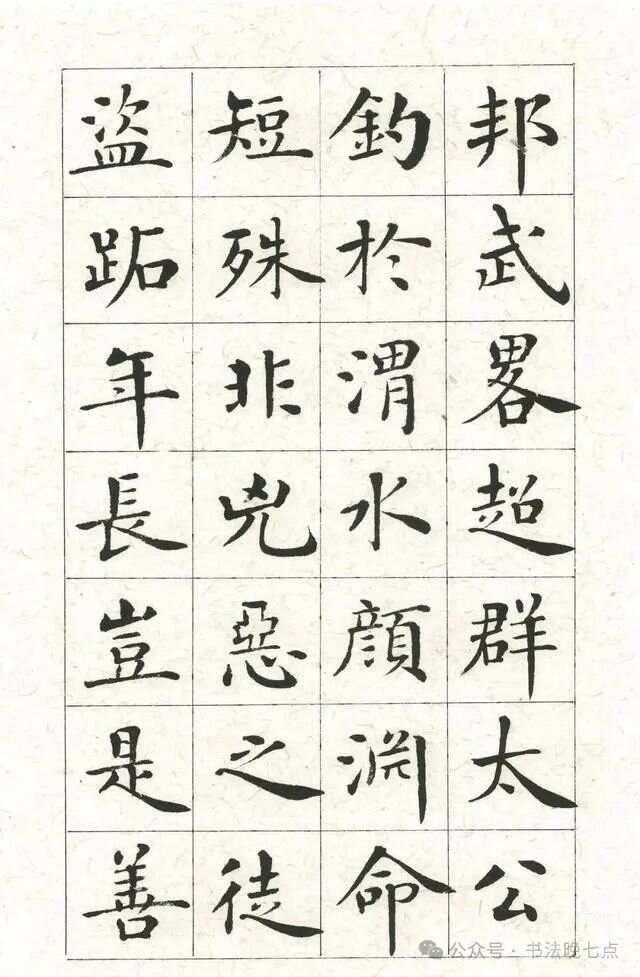 邦武畧超群太公
釣於渭水顏渊命
短殊非兇惡之徒
盜跖年長豈是善
公众号·书法晚七点